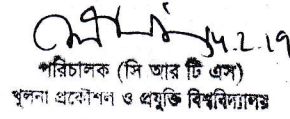 14.2.19
পরিচালক (সি আর টি এস)
খুলনা প্রকৌশল ও প্রযুক্তি বিশ্ববিদ্যালয়